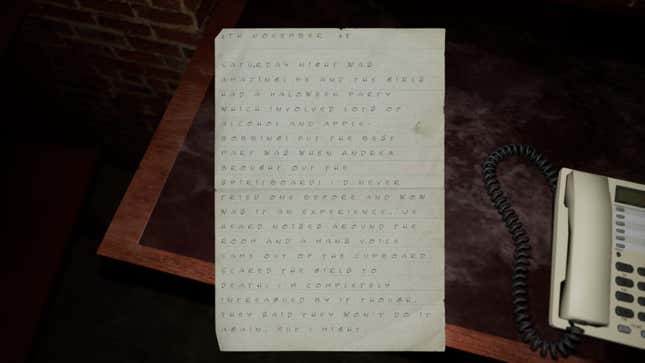 4TH NOVEMBER
SATURDAY NIGHT WAS
AMAZING! ME AND THE GIRLS
HAD A HALOWEEN PARTY
WHICH INVOLVED LOTS OF
ALCOHOL AND APPLE-
BOBBING! BUT THE BEST
PART WAS WHEN ANDREA
BROUGHT OUT THE
SPIRITBOARD! I'D NEVER
TRIED ONE BEFORE AND WOW
WAS IT AN EXPERIENCE. WE
HEARD NOISES AROUND THE
ROOM AND A MANS VOICE
CAME OUT OF THE CUPBOARD.
SCARED THE GIRLS TO
DEATH. I'M COMPLETELY
INTREAGUED BY IT THOUGH.
THEY SAID THEY WON'T DO IT
AGAIN, BUT I MIGHT.